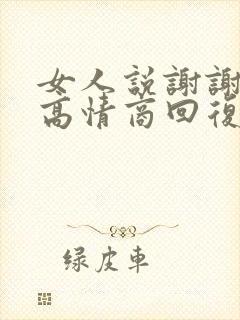 女人説謝謝
高情商回復
绿皮車